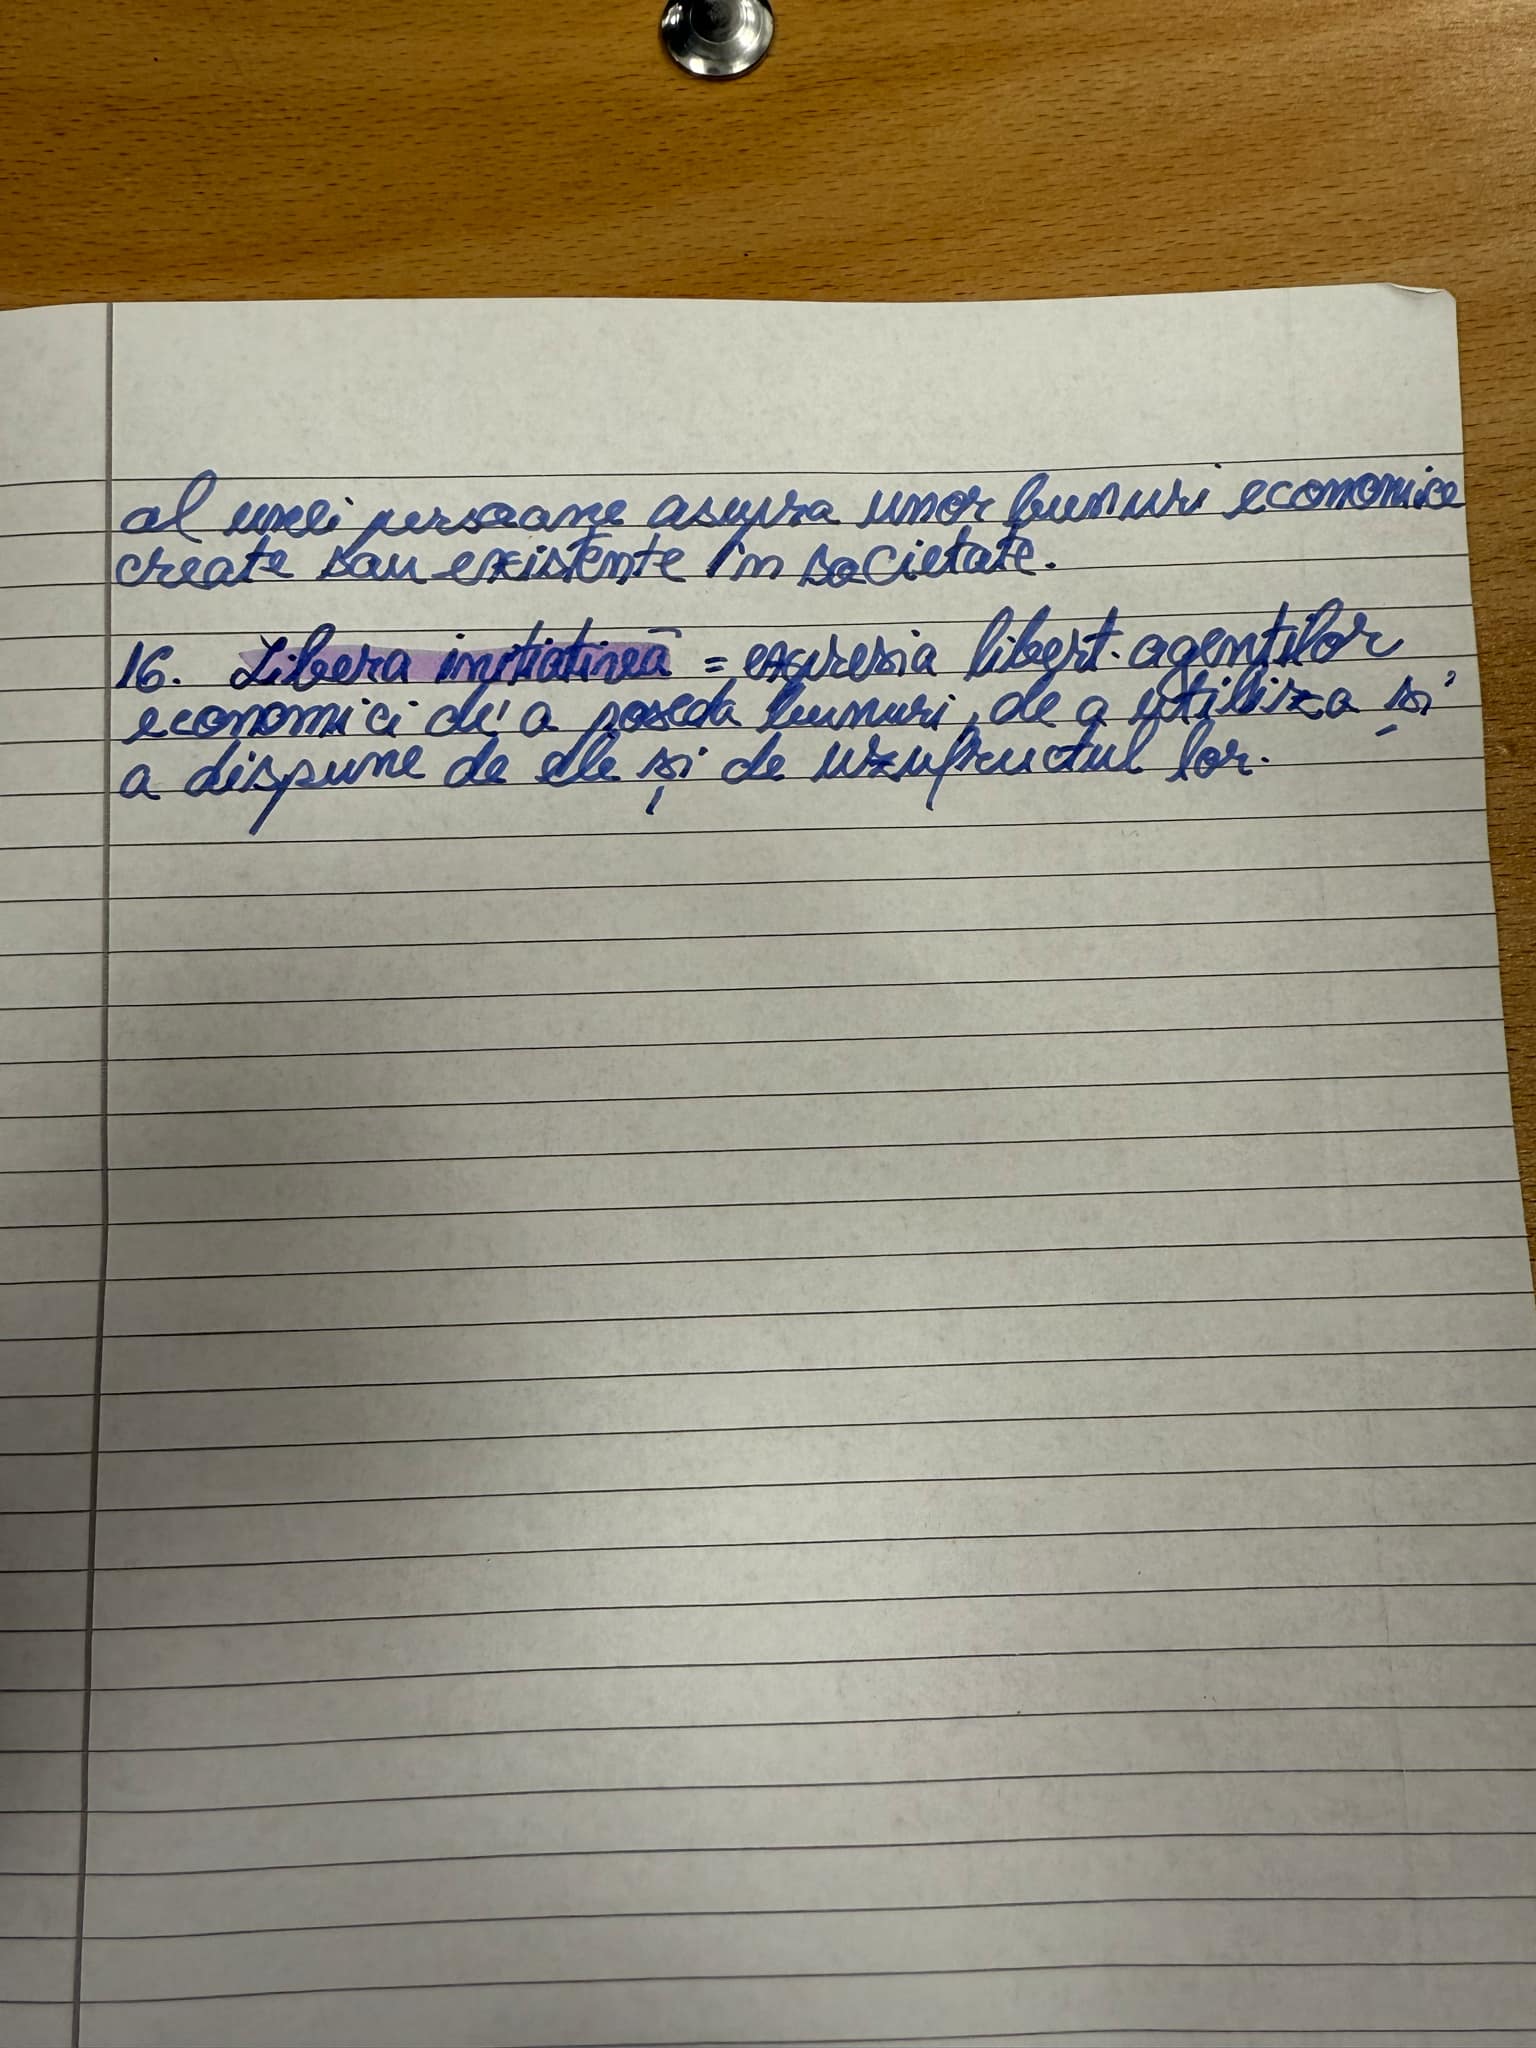 al unei persoane asupra unor bunuri economice
create sau existente în societate.
16. Libera inițiativă = expresia libert. agenților
economici de a poseda bunuri, de a utiliza și
a dispune de ele și de uzufructul lor.